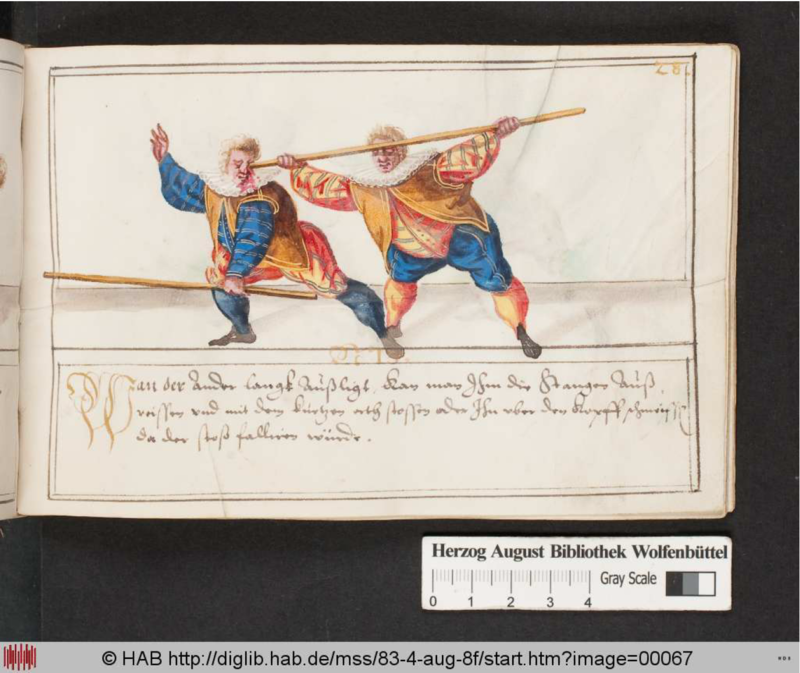 28.
Wan der Ander langk Außligt, Kan man Ihm die Stangen Auß
reissen vnd mit dem kurtzen orth stossen oder Ihn vber den Kopff schmeissen
da der stoß falliren würde.
Herzog August Bibliothek Wolfenbüttel
Gray Scale
0 1 2 3 4
© HAB http://diglib.hab.de/mss/83-4-aug-8f/start.htm?image=00067